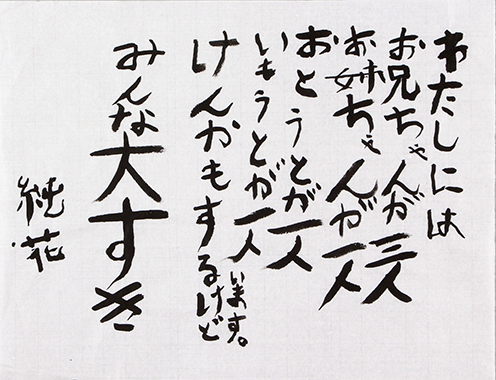 わたしには
お兄ちゃんが三人
お姉ちゃんが一人
おとうとが一人
いもうとが一人います。
けんかもするけど
みんな大すき
純花